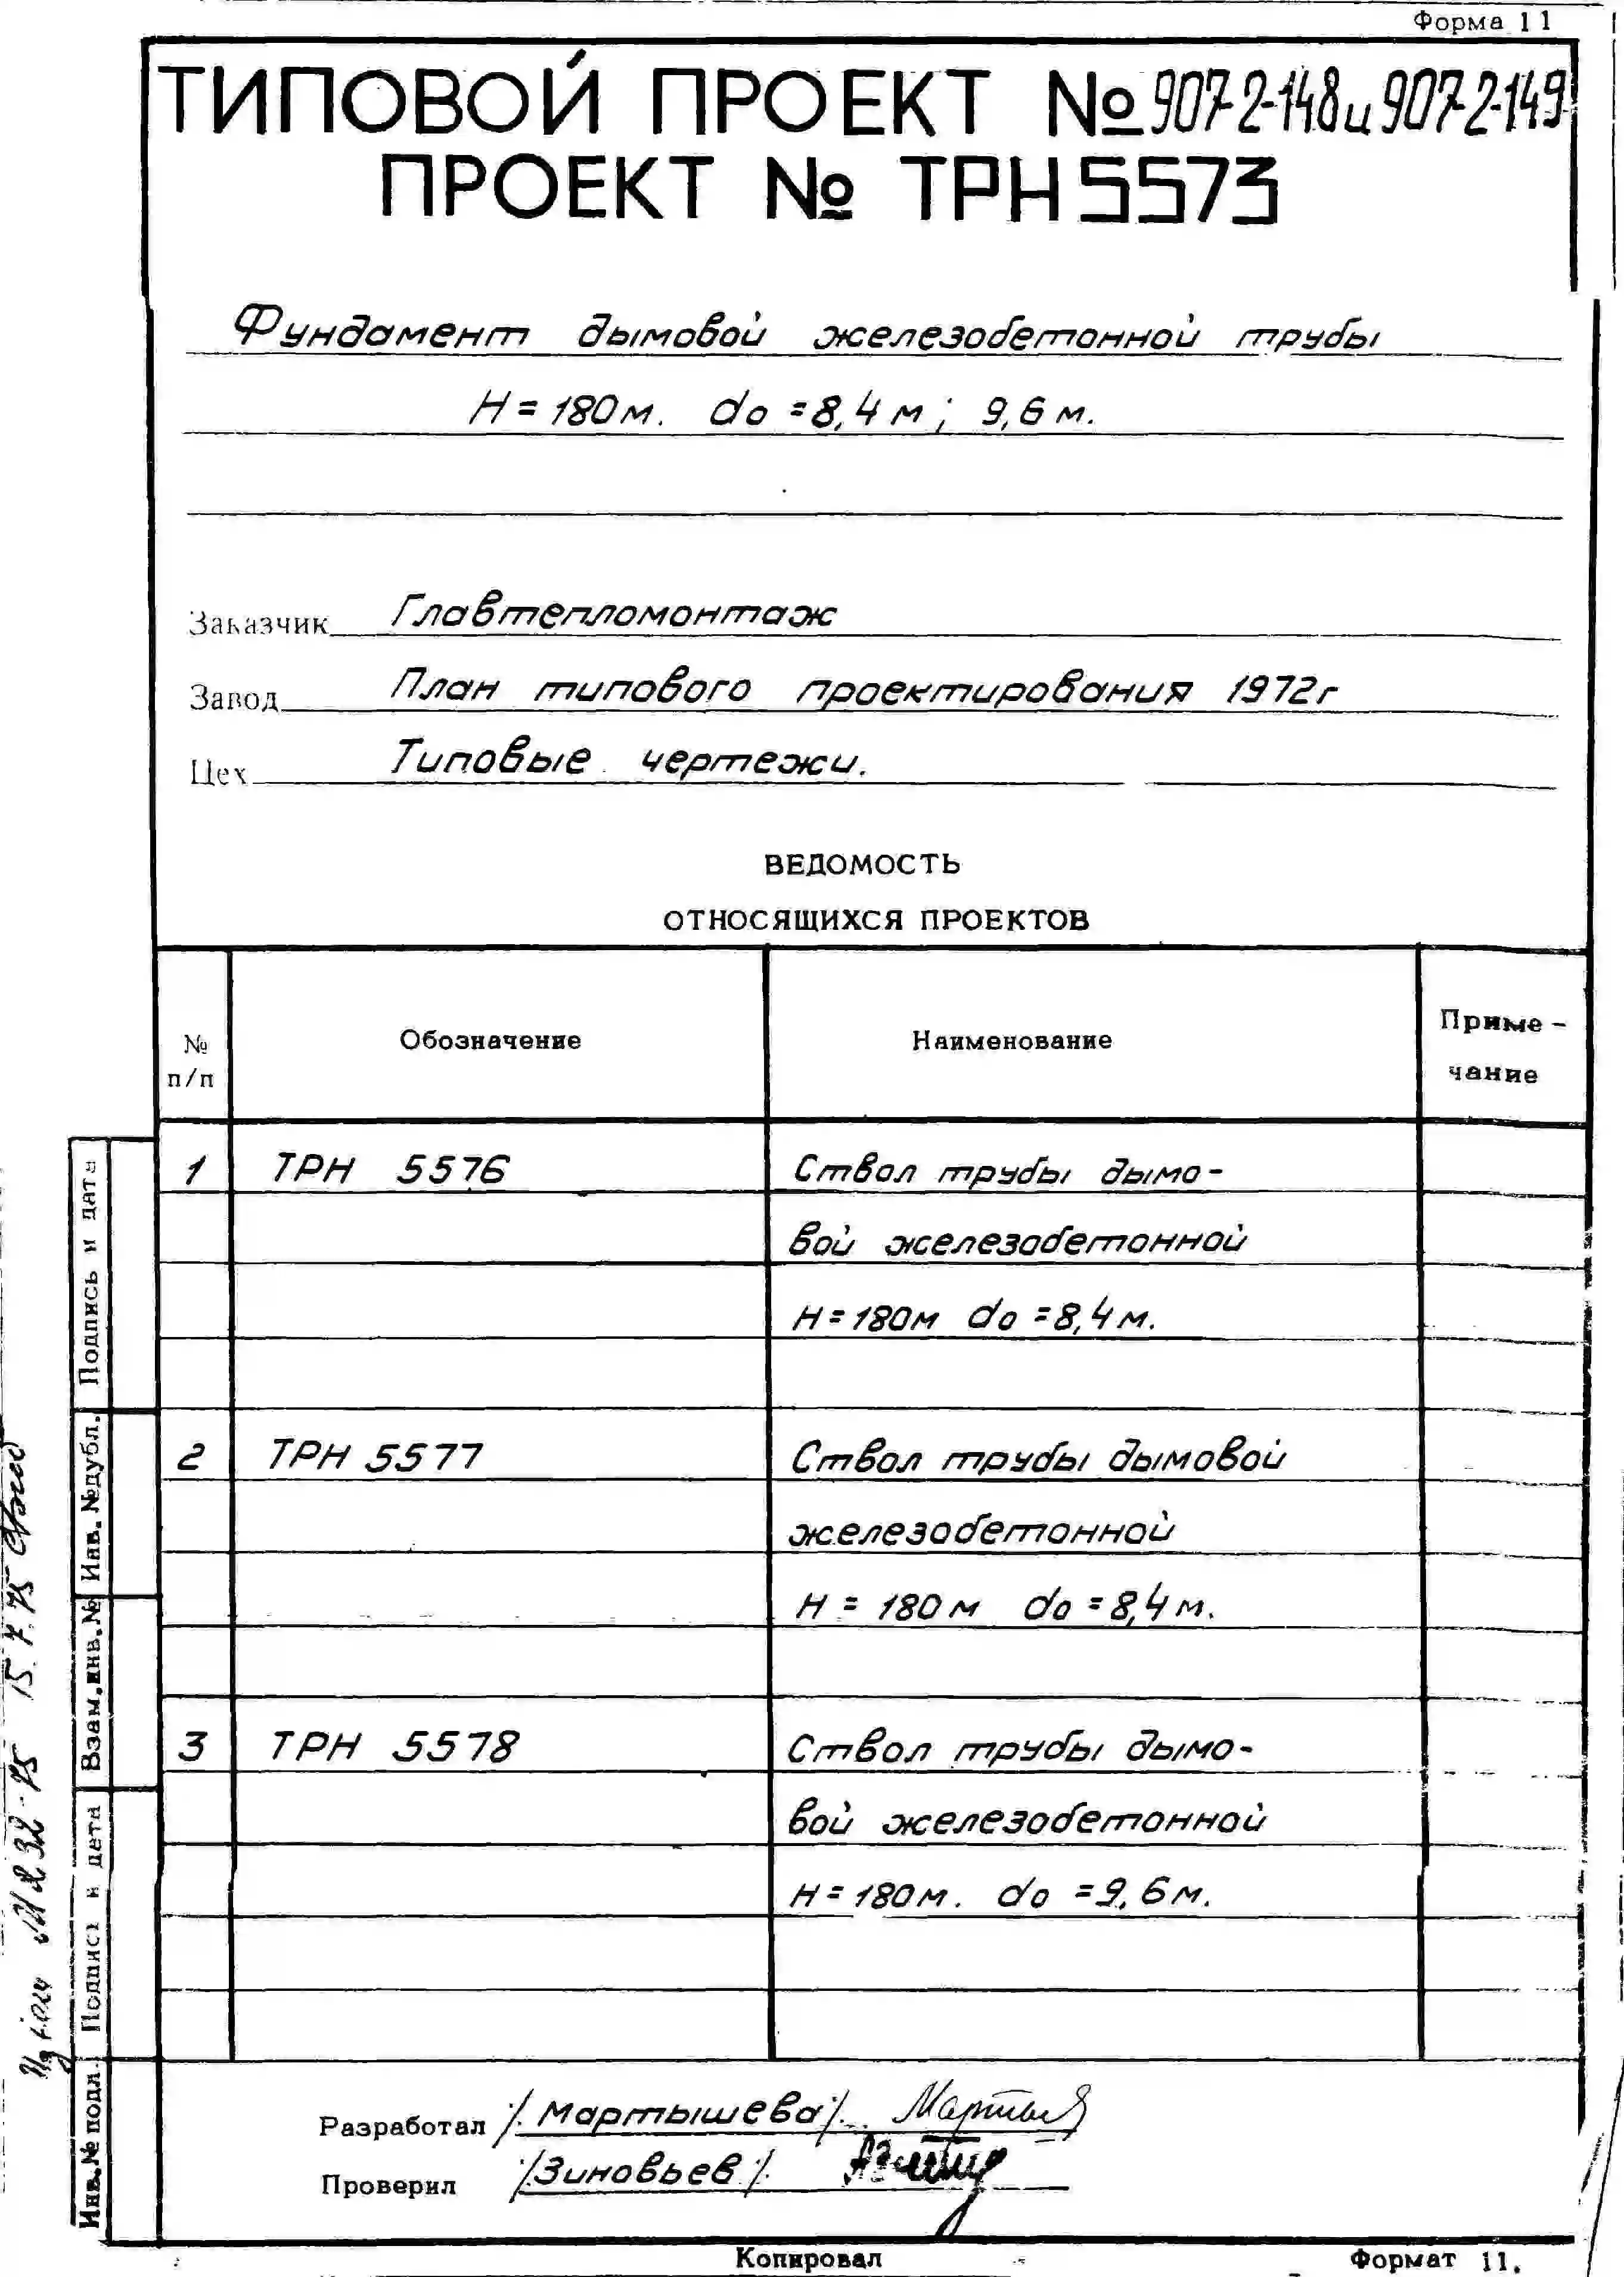 Форма 11
ТИПОВОЙ ПРОЕКТ № 907-2-148 и 907-2-149
ПРОЕКТ № ТРН 5573
Фундамент дымовой железобетонной трубы
H = 180 м. do = 8,4 м ; 9,6 м.
Заказчик Главтепломонтаж
Завод План типового проектирования 1972г
Цех Типовые чертежи.
ВЕДОМОСТЬ
ОТНОСЯЩИХСЯ ПРОЕКТОВ
№ п/п Обозначение Наименование Приме-
чание
1 ТРН 5576 Ствол трубы дымо-
вой железобетонной
H = 180м do = 8,4 м.
2 ТРН 5577 Ствол трубы дымовой
железобетонной
H = 180 м do = 8,4 м.
3 ТРН 5578 Ствол трубы дымо-
вой железобетонной
H = 180 м. do = 9,6 м.
Разработал /Мартышева/.
Проверил /Зиновьев/.
Копировал Формат 11.
Подпись и дата
Инв. №дубл.
Взам.инв.№
Подпись и дата
Инв.№ подл.
15.7.75